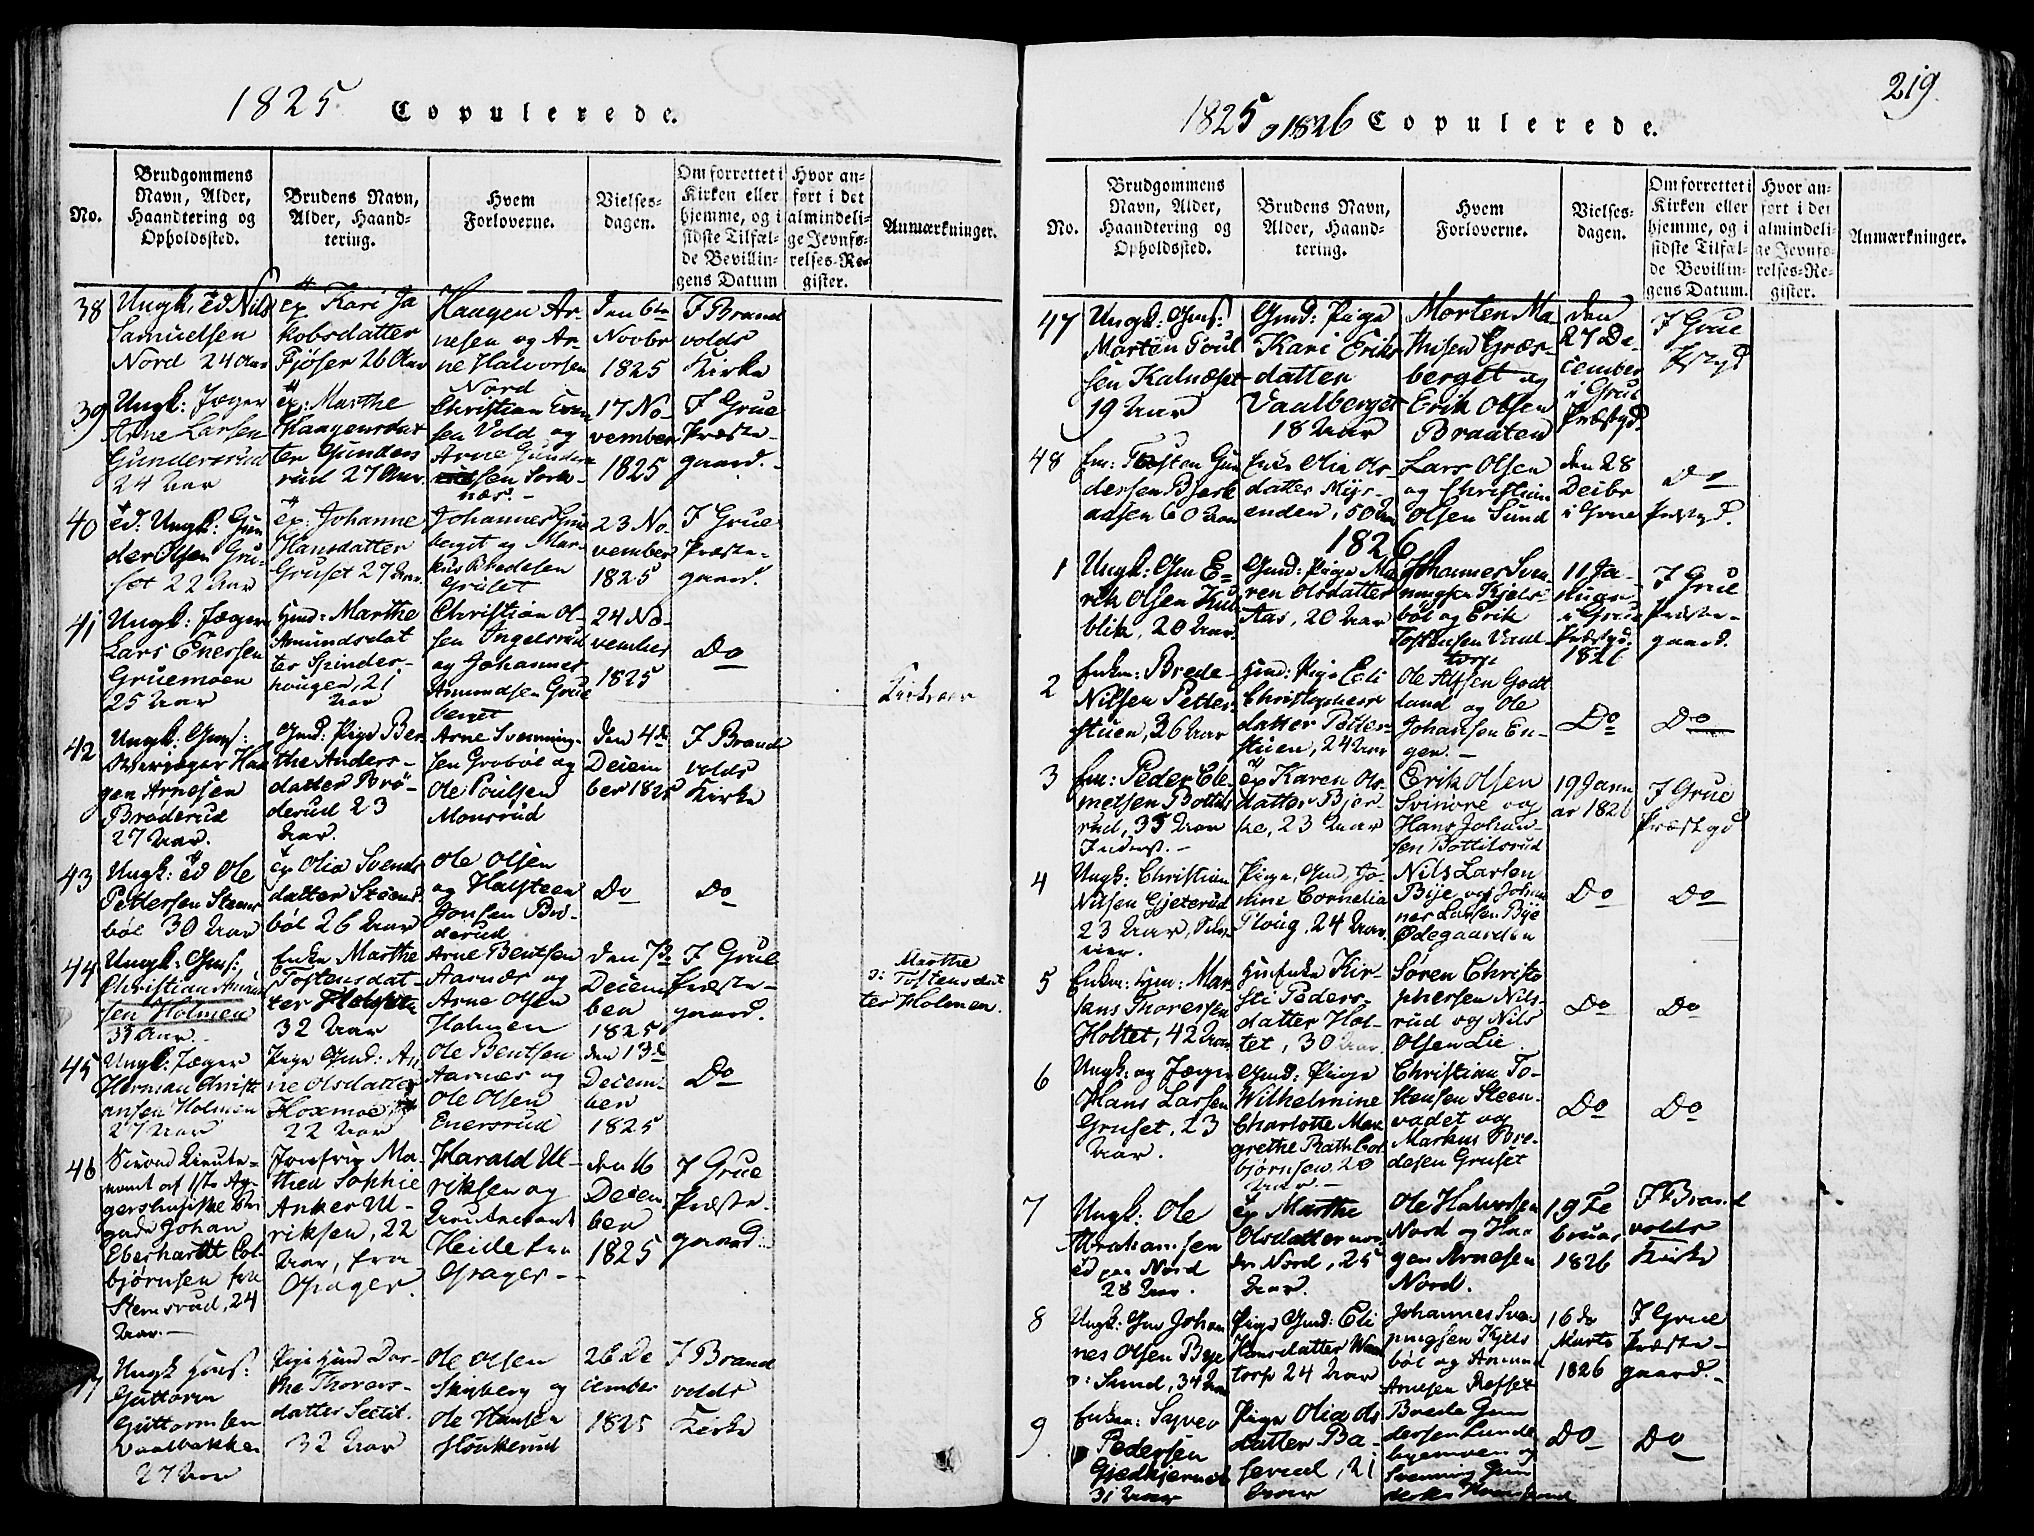 1825 Copulerede.
No.
Brudgommens
Navn, Alder,
Haandtering og
Opholdssted.
Brudens Navn,
Alder, Haand-
tering.
Hvem
Forloverne.
Vielses-
dagen.
Om forrettet i
Kirken eller
hjemme, og i
sidste Tilfæl-
de Bevillin-
gens Datum
Hvor an-
ført i det
almindeli-
ge Jevnfø-
relses-Re-
gister.
Anmærkninger.
38
Ungk. Nils
Samuelsen
Nord 24 Aar
Kari Ja
kobsdatter
Fjöser 26 Aar
Haagen Ar-
nesen og Ar-
ne Halvorsen
Nord
den 6te
Novbr
1825
I Brand
volds
Kirke
39
Ungk: Jæger
Arne Larsen
Gundersrud
24 Aar
Marthe
Haagensdat
ter Gunders
rud 27 Aar
Christian Even
sen Vold og
Arne Gunder
sen Sork-
næs.-
17 No-
vember
1825
I Grue
Præste-
gaard.-
40
Ungk: Gun
der Olsen Gru-
set 22 Aar
Johanne
Hansdatter
Gruset 27 Aar.
Johannes Grue
berget og Mar-
kus Bredesen
Gruset
23 No-
vember
1825
I Grue
Præste-
gaard.
41
Ungk: Jæger
Lars Enersen
Gruemoen
25 Aar
Marthe
Amundsdat
ter Spinder-
hougen, 21
Aar
Christian Ol-
sen Ingelsrud
og Johannes
Amundsen Grue
berget
24 No-
vember
1825
Do
42
Ungk: Gms:
Haa
gen Arnesen
Bröderud
27 Aar.
Gmd: Pige Ber-
the Anders-
datter Brö-
derud 23
Aar.
Arne Svenning-
sen Grobøl og
Ole Poulsen
Monsrud
den 4de
Decem
ber 1825
I Brand
volds
Kirke
43
Ungk: Ole
Pettersen Steens
böl 30 Aar
Olia Svends
datter Steens
böl 26 Aar
Ole Olsen
og Halsteen
Jonsen Brö-
derud
Do
Do
44
Ungk: Gms:
Christian
sen Holmen
Enke Marthe
Tostensdat-
ter
32 Aar
Arne Bentsen
Aarnæs og
Arne Olsen
Holmen
den 7de
Decem
ber
1825
I Grue
Præste-
gaard.
Marthe
Tostensdat
ter Holmen.
45
Ungk: Jæger
Herman Christi
ansen Holmen
27 Aar
Pige Gmd: An
ne Olsdatter
Hoxmoe
22 Aar
Ole Bentsen
Aarnæs og
Ole Olsen
Enersrud
den 13de
Decem-
ber
1825
Do
46
Lieute-
nant af 1ste Ag-
gershusiske Bri
gade Johan
Eberhardt Col-
bjørnsen fra
Stemsrud, 24
Aar.-
Jomfru Ma-
thea Sophie
Anker Ul-
riksen, 22
Aar, fra
Opager.
Harald Ul-
riksen og
Lieutenant
Heide fra
Opager-
den 16
Decem-
ber
1825
I Grue
Præste-
gaard.
Ungk Huus:
Guttorm
Guttormsen
Vaalbakken
27 Aar
Pige Hmd Dor-
the Thores-
datter Setil.
32 Aar
Ole Olsen
Skyberg og
Ole Hansen
26 De
cember
1825
I Brand
volds
Kirke
1825 og 1826 Copulerede.
219.
No.
Brudgommens
Navn, Alder,
Haandtering og
Opholdssted.
Brudens Navn,
Alder, Haand-
tering.
Hvem
Forloverne.
Vielses-
dagen.
Om forrettet i
Kirken eller
hjemme, og i
sidste Tilfæl-
de Bevillin-
gens Datum.
Hvor an-
ført i det
almindeli-
ge Jevnfø-
relses-Re-
gister.
Anmærkninger.
47
Ungk: Gms:
Morten Poul
sen Kalnæset
19 Aar
Gmd: Pige
Kari Eriks
datter
Vaalberget
18 Aar
Morten Ma
thisen Græs-
berget og
Erik Olsen
Braaten
den
27 De-
cember
i Grue
Præstgd.
I Grue
48
Em: Tosten Gun
dersen Bjerk
aasen 60 Aar
Enke Olia Ols
datter Myr-
enden, 50 Aar
Lars Olsen
og Christian
Olsen Sund
den 28
Decbr
i Grue
Do
Præstgd.
1826
1
Ungk: Gm E-
rik Olsen Kub
blik, 20 Aar.
Gmd: Pige Ma
ren Olsdatter
Aas, 20 Aar
Johannes Sven-
ningsen Kjels-
böl og Erik
Tostensen Vaal-
torp
11 Ja-
nuar
i Grue
Præstgd:
1826
I Grue
Præste-
gaard.
2
Enkm: Brede
Nilsen Petter
stuen, 36 Aar
Gmd: Pige Eli
Christophers
datter Petter-
stuen, 24 Aar
Ole Alfsen Godt
land og Ole
Johansen En-
gen.-
Do
Do
3
Em: Peder Cle
metsen Bottils
rud, 35 Aar
Inderst.-
Karen Ols
datter Bjer-
ke, 23 Aar
Erik Olsen
Svinöre og
Hans Johan-
sen Bottilsrud
19 Janu
ar 1826
I Grue
Præstgd
4
Ungk: Christian
Nilsen Gjeterud
23 Aar,
Pige, Gmd, Jo-
hine Cornelia
Ploug, 24 Aar.
Nils Larsen
Bye og Johan
nes Larsen Bye
Ødegaarden
Do
Do
5
Enkm: Hm: Mar
Thoresen
Holtet, 42 Aar
Kir-
sti Peders-
datter Hol-
tet, 30 Aar.
Søren Christo
phersen Nils-
rud og Nils
Olsen Lie.
Do
Do
6
Ungk: og Jæger
Hans Larsen
Gruset, 23
Aar.
Gmd: Pige
Wilhelmine
Charlotte Mar
grethe Rath Col
bjørnsen, 20
Aar.-
Christian To-
stensen Steen
vadet og
Markus Bre-
desen Gruset
Do
Do
7
Ungk: Ole
Abrahamsen
paa Nord
28 Aar.
Marthe
Olsdatter
Nord, 25
Aar.
Ole Halvorsen
Nord og Haa
gen Arnesen
Nord.
19 Fe
bruar
1826
I Brand
volds
Kirke
8
Ungk: Gm Johan
nes Olsen Bye
Sund, 34 Aar
Pige Gmd: Eli
Hansdatter
torp 24 Aar
Johannes Sven
ningsen Kjels
böl og Amund
Arnesen Refset
16de
Marts
1826
I Grue
Præste-
gaard.-
9.
Enkm:
Pedersen
31 Aar
Pige Olia Ols
datter Ba-
serud, 21
Aar
Brede Gun
dersen Lunde
byemoen og
Svenning Gun
Do
Do